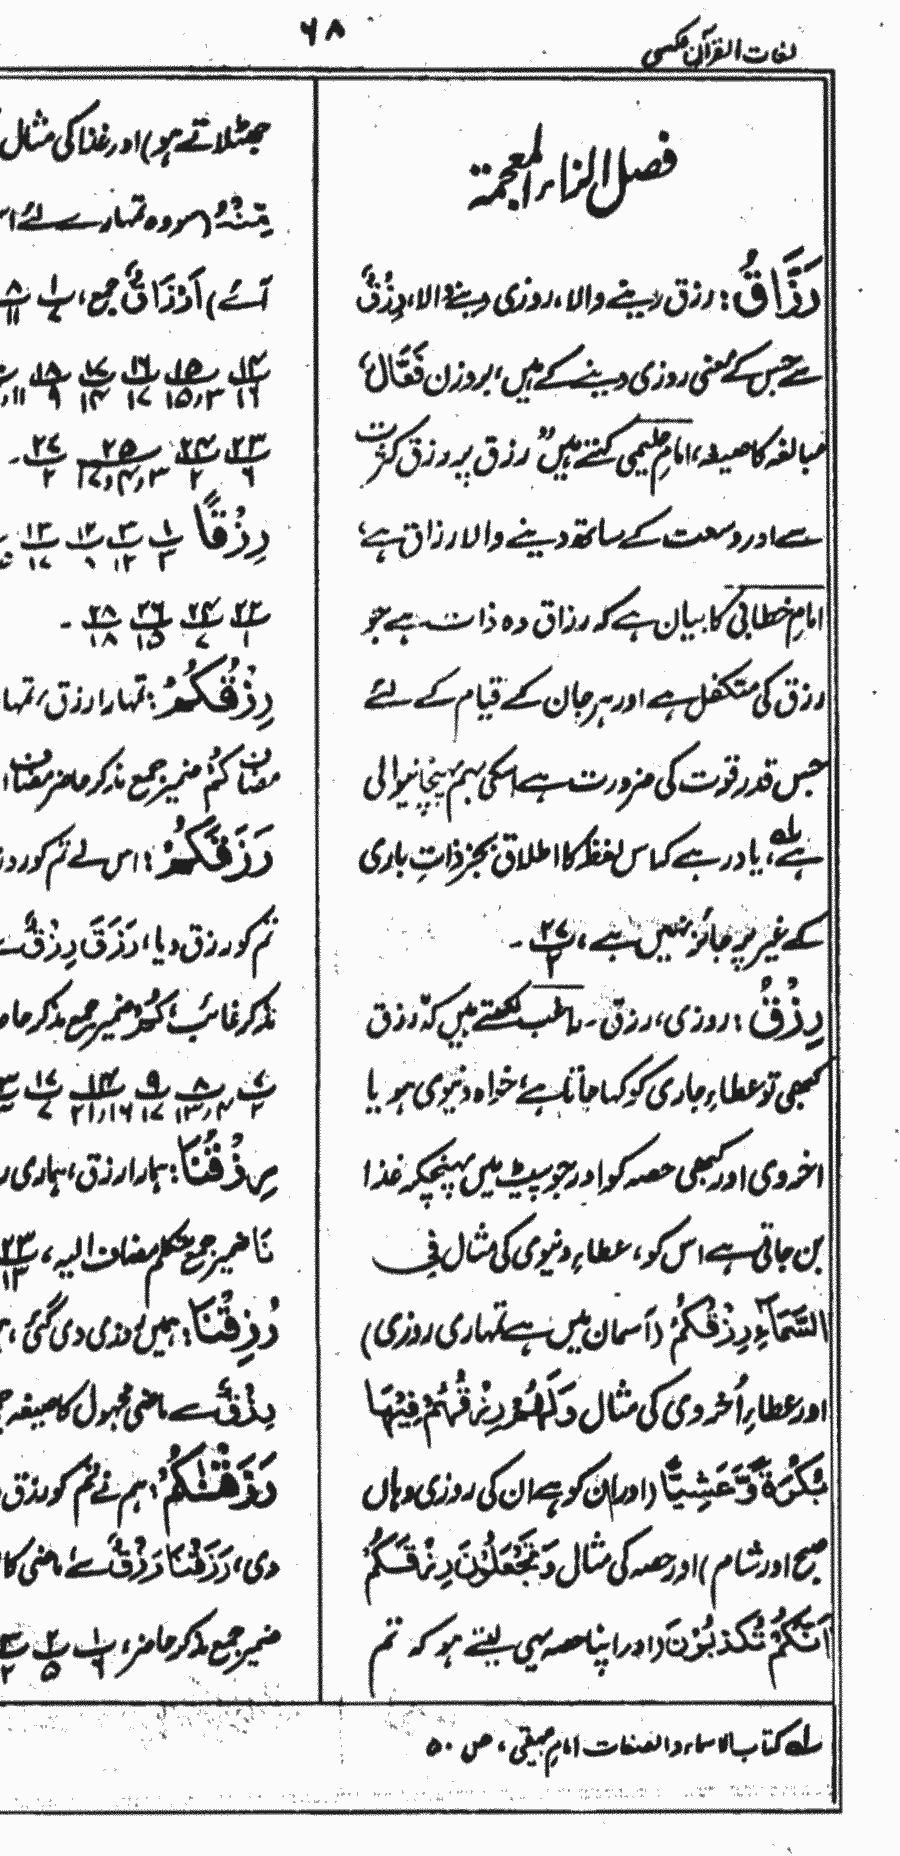 لغات القرآن عکسی
۶۸
فصل الزاء المعجمة
رَزَّاقُ: رزق دینے والا، روزی دینے والا، رِزْقٌ
سے جس کے معنی روزی دینے کے ہیں، بروزن فَعَّالٌ
مبالغہ کا صیغہ، امام حلیمی کہتے ہیں "رزق پر رزق کثرت
سے اور وسعت کے ساتھ دینے والا رزاق ہے،
امام خطابی کا بیان ہے کہ رزاق وہ ذات ہے جو
رزق کی متکفل ہے اور ہر جان کے قیام کے لئے
جس قدر قوت کی ضرورت ہے اسکی بہم پہنچانیوالی
ہے، یاد رہے کہ اس لفظ کا اطلاق بجز ذاتِ باری
کے غیر پر جائز نہیں ہے، ۲۷ ۲ ۔
رِزْقُ: روزی، رزق ۔ راغب لکھتے ہیں کہ رزق
کبھی تو عطاءِ جاری کو کہا جاتا ہے، خواہ دنیوی ہو یا
اخروی اور کبھی حصہ کو اور جو پیٹ میں پہنچکر غذا
بن جاتی ہے اس کو، عطاءِ دنیوی کی مثال فِی
السَّمَآءِ رِزْقُکُمْ (آسمان میں ہے تمہاری روزی)
اور عطاءِ اُخروی کی مثال وَلَهُمْ رِزْقُهُمْ فِیْهَا
بُکْرَةً وَّعَشِیًّا (اور ان کو ہے ان کی روزی وہاں
صبح اور شام) اور حصہ کی مثال وَتَجْعَلُوْنَ رِزْقَکُمْ
اَنَّکُمْ تُکَذِّبُوْنَ (اور اپنا حصہ یہی لیتے ہو کہ تم
جھٹلاتے ہو) اور غذا کی مثال
مِّنْهُ (سو وہ تمہارے لئے
آئے) اَرْزَاقٌ جمع، ۱ ۷ ۸ ۱۱
۱۴ ۱۶ ۱۵ ۱۵٫۳ ۱۶ ۱۷ ۱۷ ۱۴ ۱۸ ۹
۲۳ ۶ ۲۴ ۲ ۲۵ ۱۷٫۴٫۳ ۲۷ ۲ ۔
رِزْقًا ۱ ۳ ۳ ۱۲ ۱۲ ۹ ۱۳ ۱۷
۲۳ ۱ ۲۴ ۷ ۲۶ ۱۵ ۲۸ ۱۸ ۔
رِزْقُکُمْ: تمہارا رزق، تمہا
مضاف کُمْ ضمیر جمع مذکر حاضر مضاف
رَزَقَکُمْ: اس نے تم کو روز
تم کو رزق دیا، رَزَقَ رِزْقٌ سے
مذکر غائب، کُمْ ضمیر جمع مذکر حا
۷ ۲ ۸ ۱۳٫۴ ۹ ۱۷ ۱۴ ۲۱٫۱۶ ۱۷ ۷
رِزْقُنَا: ہمارا رزق، ہماری
نَا ضمیر جمع متکلم مضاف الیہ، ۲۳ ۱۳
رُزِقْنَا: ہمیں روزی دی گئی،
رِزْقٌ سے ماضی مجہول کا صیغہ
رَزَقْنٰکُمْ: ہم نے تم کو رزق
دی، رَزَقْنَا رِزْقٌ سے ماضی کا
ضمیر جمع مذکر حاضر، ۱ ۶ ۲ ۵
لہ کتاب الاسماء والصفات امام بیہقی، ص ۵۰